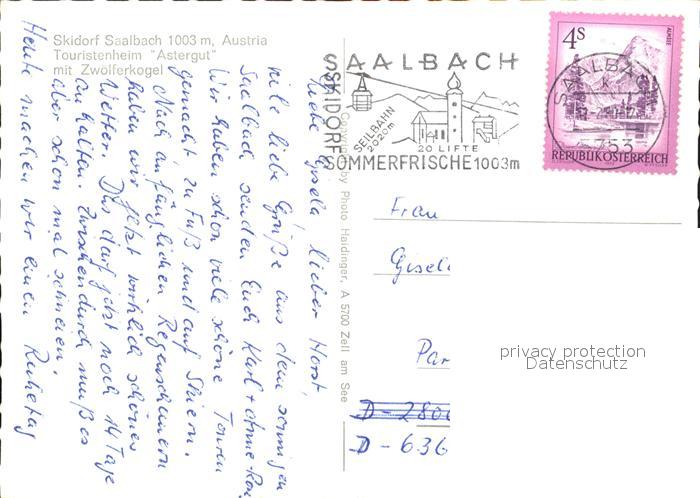 Skidorf Saalbach 1003 m, Austria
Touristenheim "Astergut"
mit Zwölferkogel
Liebe Gisela, lieber Horst,
viele liebe Grüße aus dem sonnigen
Saalbach senden Euch Karl +
Wir haben schon viele schöne Touren
gemacht zu Fuß und auf Skiern.
Nach anfänglichen Regenschauern
haben wir jetzt wirklich schönes
Wetter. Das darf jetzt noch 14 Tage
so halten. Zwischendurch muß es
aber schon mal schneien.
Heute machen wir einen Ruhetag
Copyright by Photo Haidinger, A 5700 Zell am See
SAALBACH
SKIDORF
SEILBAHN
2020m
20 LIFTE
SOMMERFRISCHE 1003m
4S
ALMSEE
SAALBACH
5753
REPUBLIK ÖSTERREICH
Frau
Gisel
Par
privacy protection
Datenschutz
D-280
D-636